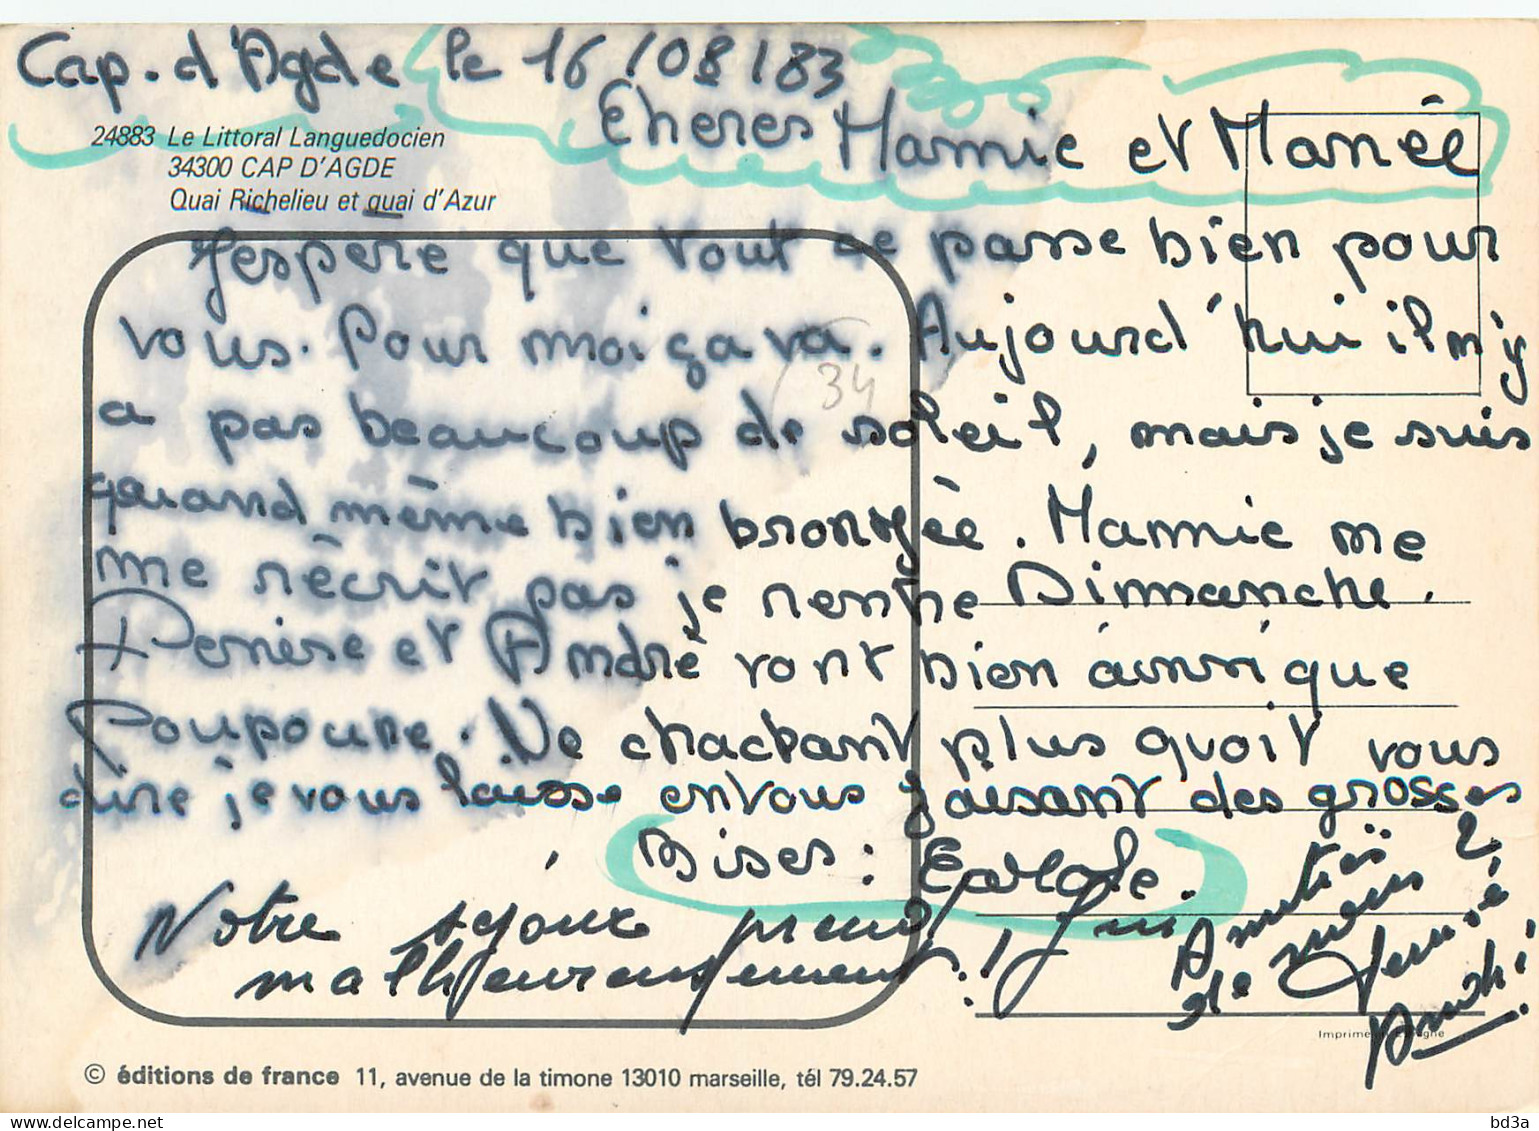 Cap. d'Agde le 16/08/83
24883 Le Littoral Languedocien
34300 CAP D'AGDE
Quai Richelieu et quai d'Azur
Cheres Mamie et Manée
J'espère que tout se passe bien pour
vous. Pour moi ça va. Aujourd'hui il n'y
34
a pas beaucoup de soleil, mais je suis
quand même bien bronzée. Mamie me
me récrit pas je rentre Dimanche.
Denise et André vont bien áinsi que
Poupoune. Ne chachant plus quoit vous
dire je vous laisse en vous faisant des grosses
Bises : Carole.
Notre sejour prend fin
malheureusement..!
Amitiés
de nous 2
Denise
André
Imprimé en Espagne
© éditions de france 11, avenue de la timone 13010 marseille, tél 79.24.57
delcampe.net
bd3a